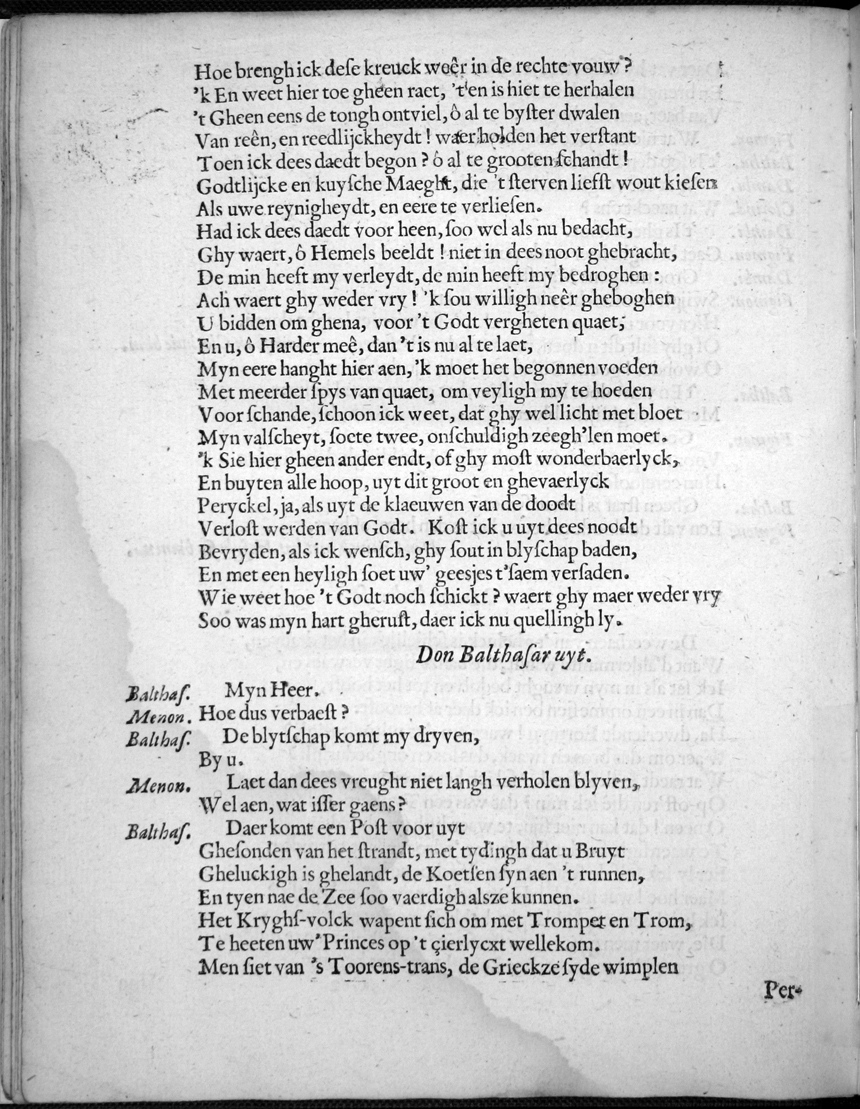 Hoe brengh ick deſe kreuck weêr in de rechte vouw?
'k En weet hier toe gheen raet, 't en is hiet te herhalen
't Gheen eens de tongh ontviel, ô al te byſter dwalen
Van reên, en reedlijckheydt! waer holden het verſtant
Toen ick dees daedt begon? ô al te grooten ſchandt!
Godtlijcke en kuyſche Maeght, die 't ſterven liefſt wout kieſen
Als uwe reynigheydt, en eere te verlieſen.
Had ick dees daedt voor heen, ſoo wel als nu bedacht,
Ghy waert, ô Hemels beeldt! niet in dees noot ghebracht,
De min heeft my verleydt, de min heeft my bedroghen:
Ach waert ghy weder vry! 'k ſou willigh neêr gheboghen
U bidden om ghena, voor 't Godt vergheten quaet;
En u, ô Harder meê, dan 't is nu al te laet,
Myn eere hanght hier aen, 'k moet het begonnen voeden
Met meerder ſpys van quaet, om veyligh my te hoeden
Voor ſchande, ſchoon ick weet, dat ghy wel licht met bloet
Myn valſcheyt, ſoete twee, onſchuldigh zeegh'len moet.
'k Sie hier gheen ander endt, of ghy moſt wonderbaerlyck,
En buyten alle hoop, uyt dit groot en ghevaerlyck
Peryckel, ja, als uyt de klaeuwen van de doodt
Verloſt werden van Godt. Koſt ick u uyt dees noodt
Bevryden, als ick wenſch, ghy ſout in blyſchap baden,
En met een heyligh ſoet uw' geesjes t'ſaem verſaden.
Wie weet hoe 't Godt noch ſchickt? waert ghy maer weder vry
Soo was myn hart gheruſt, daer ick nu quellingh ly.
Don Balthaſar uyt.
Balthaſ. Myn Heer.
Menon. Hoe dus verbaeſt?
Balthaſ. De blytſchap komt my dryven,
By u.
Menon. Laet dan dees vreught niet langh verholen blyven,
Wel aen, wat iſſer gaens?
Balthaſ. Daer komt een Poſt voor uyt
Gheſonden van het ſtrandt, met tydingh dat u Bruyt
Gheluckigh is ghelandt, de Koetſen ſyn aen 't runnen,
En tyen nae de Zee ſoo vaerdigh alsze kunnen.
Het Kryghſ-volck wapent ſich om met Trompet en Trom,
Te heeten uw' Princes op 't çierlycxt wellekom.
Men ſiet van 's Toorens-trans, de Grieckze ſyde wimplen
Per-